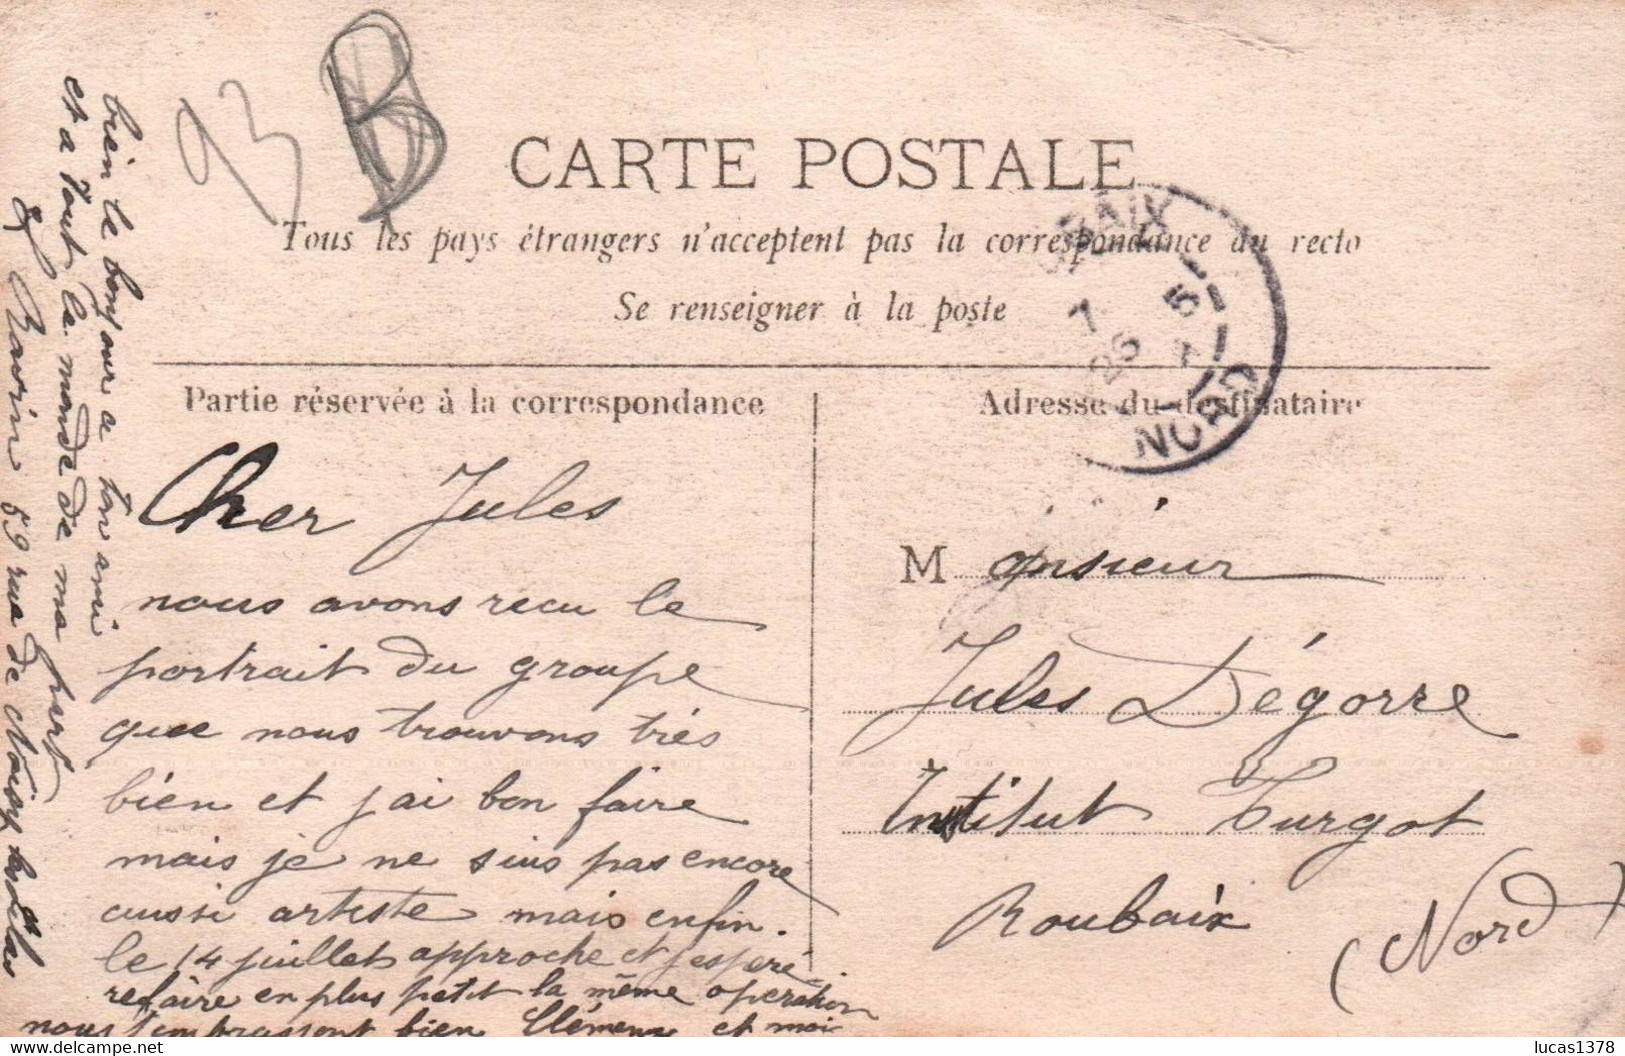 93 B
CARTE POSTALE
Tous les pays étrangers n'acceptent pas la correspondance au recto
Se renseigner à la poste
Partie réservée à la correspondance
Adresse du destinataire
BAIX
7
26
5
NORD
Cher Jules
nous avons recu le
portrait du groupe
que nous trouvons très
bien et j'ai bon faire
mais je ne suis pas encore
aussi artiste mais enfin.
le 14 juillet approche et j'espère
refaire en plus petit la même opération
nous t'embrassont bien Clémence et moi
bien le bonjour a ton ami
et a tout le monde de ma part
59 rue de
Monsieur
Jules Dégorre
Institut Turgot
Roubaix
(Nord)
lucas1378